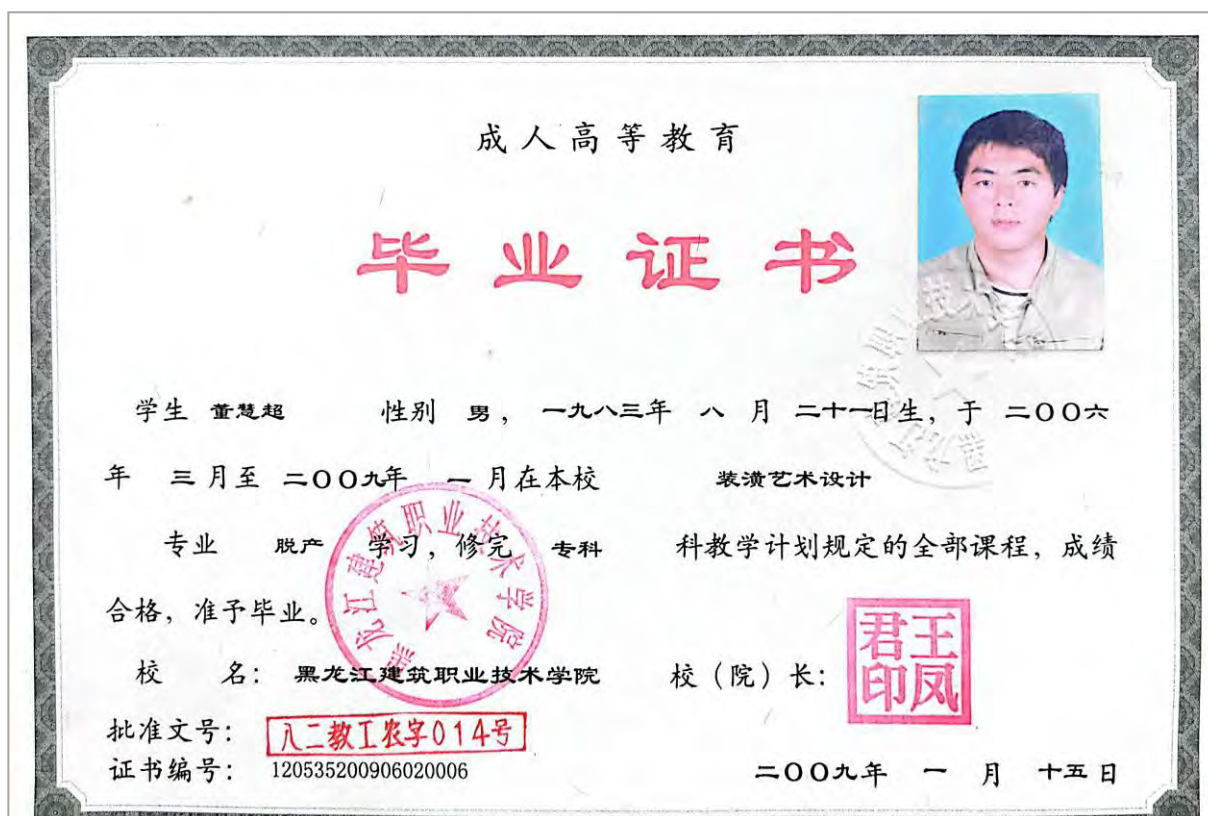 成人高等教育
毕业证书
学生 董慧超 性别 男, 一九八三年 八 月 二十一日生, 于 二〇〇六
年 三 月至 二〇〇九年 一 月在本校 装潢艺术设计
专业 脱产 学习, 修完 专科 科教学计划规定的全部课程, 成绩
合格, 准予毕业。
黑龙江建筑职业技术学院
校 名: 黑龙江建筑职业技术学院 校(院)长: 王凤君印
批准文号: 八二教工农字014号
证书编号: 120535200906020006 二〇〇九年 一 月 十五日